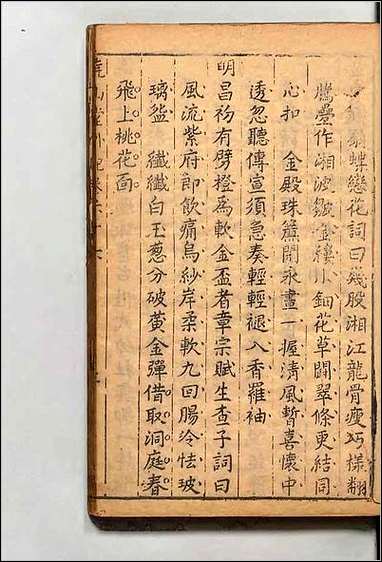 蝶戀花詞曰幾股湘江龍骨瘦巧樣翻
騰疊作湘波皺金縷小鈿花草鬪翠條更結同
心扣 金殿珠簾閒永晝一握清風暫喜懷中
透忽聽傳宣須急奏輕輕褪入香羅袖
明昌初有劈橙爲軟金盃者章宗賦生查子詞曰
風流紫府郎飲痛烏紗岸柔軟九回腸冷怯玻
璃盌 纖纖白玉葱分破黃金彈借取洞庭春
飛上桃花面